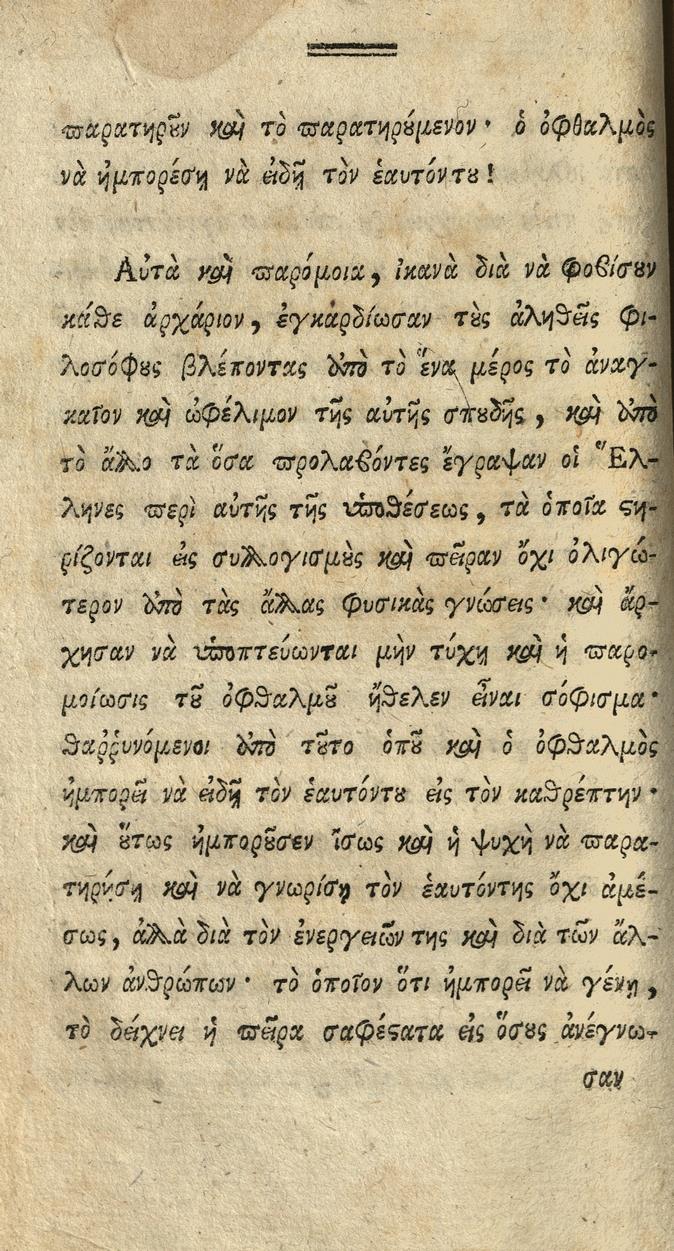 παρατηροῦν καὶ τὸ παρατηρούμενον· ὁ ὀφθαλμὸς
νὰ ἠμπορέσῃ νὰ εἰδῇ τὸν ἑαυτόντου!
Αὐτὰ καὶ παρόμοια, ἱκανὰ διὰ νὰ φοβίσουν
κάθε ἀρχάριον, ἐγκάρδίωσαν τοὺς ἀληθεῖς φι-
λοσόφους βλέποντας ἀπὸ τὸ ἕνα μέρος τὸ ἀναγ-
καῖον καὶ ὠφέλιμον τῆς αὐτῆς σπουδῆς, καὶ ἀπὸ
τὸ ἄλλο τὰ ὅσα προλαβόντες ἔγραψαν οἱ Ἕλ-
ληνες περὶ αὐτῆς τῆς ὑποθέσεως, τὰ ὁποῖα ϛη-
ρίζονται εἰς συλλογισμοὺς καὶ πεῖραν ὄχι ὀλιγώ-
τερον ἀπὸ τὰς ἄλλας φυσικὰς γνώσεις· καὶ ἄρ-
χησαν νὰ ὑποπτεύωνται μὴν τύχῃ καὶ ἡ παρο-
μοίωσις τοῦ ὀφθαλμοῦ ἤθελεν εἶναι σόφισμα·
θαῤῥυνόμενοι ἀπὸ τοῦτο ὁποῦ καὶ ὁ ὀφθαλμὸς
ἠμπορεῖ νὰ εἰδῇ τὸν ἑαυτόντου εἰς τὸν καθρέπτην·
καὶ οὕτως ἠμποροῦσεν ἴσως καὶ ἡ ψυχὴ νὰ παρα-
τηρήσῃ καὶ νὰ γνωρίσῃ τὸν ἑαυτόντης ὄχι ἀμέ-
σως, ἀλλὰ διὰ τὸν ἐνεργειῶν της καὶ διὰ τῶν ἄλ-
λων ἀνθρώπων· τὸ ὁποῖον ὅτι ἠμπορεῖ νὰ γένῃ,
τὸ δείχνει ἡ πεῖρα σαφέϛατα εἰς ὅσους ἀνέγνω-
σαν